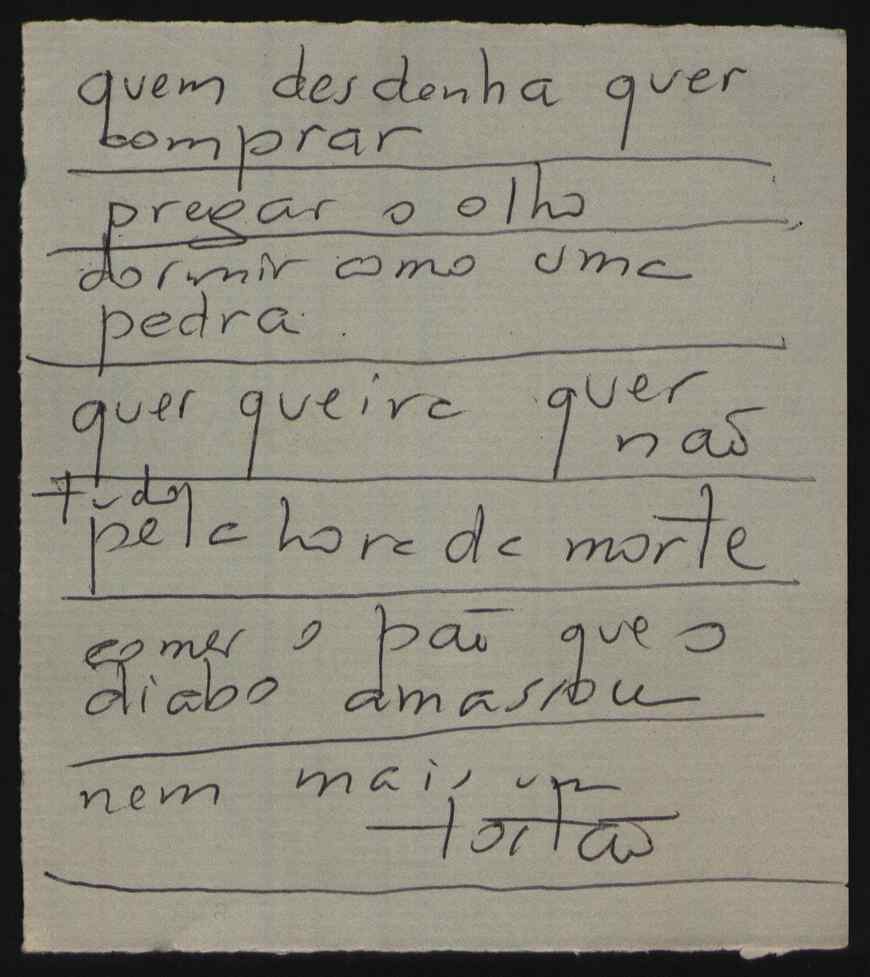 quem desdenha quer
comprar
pregar o olho
dormir como uma
pedra
quer queira quer
não
tudo
pela hora da morte
comer o pão que o
diabo amassou
nem mais um
tostão